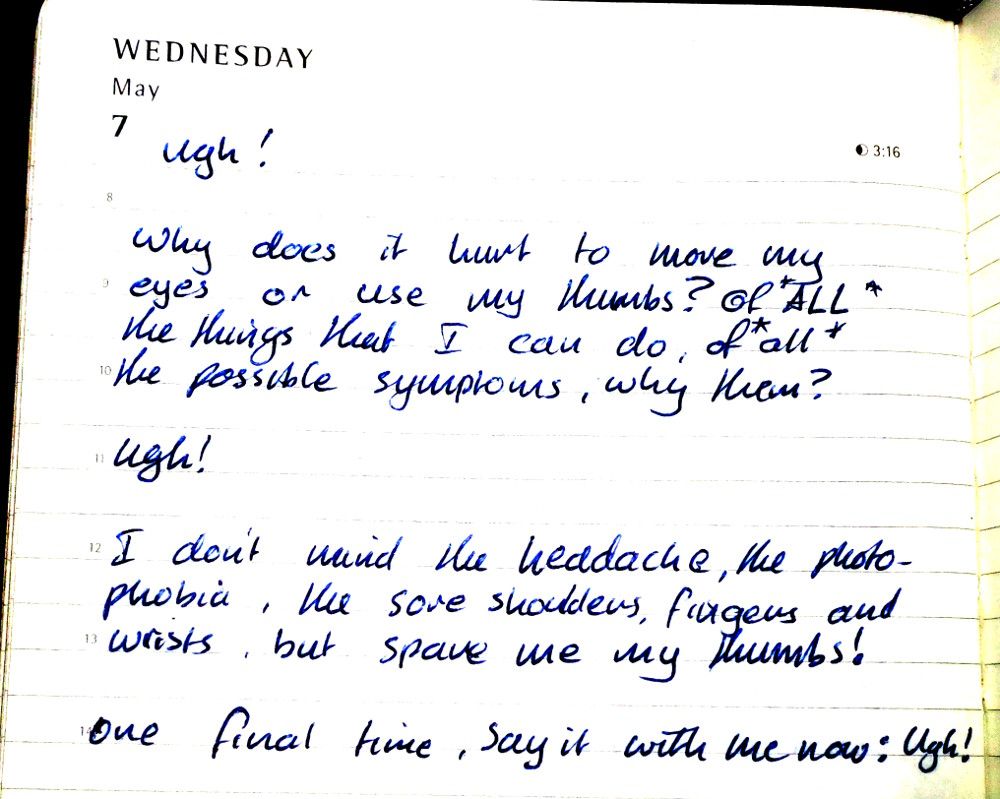 WEDNESDAY
May
7
Ugh!
3:16
8
Why does it hurt to move my
9
eyes or use my thumbs? Of *ALL*
the things that I can do, of *all*
10
the possible symptoms, why them?
11
Ugh!
12
I don't mind the headache, the photo-
phobia, the sore shoulders, fingers and
13
wrists, but spare me my thumbs!
14
One final time, say it with me now: Ugh!